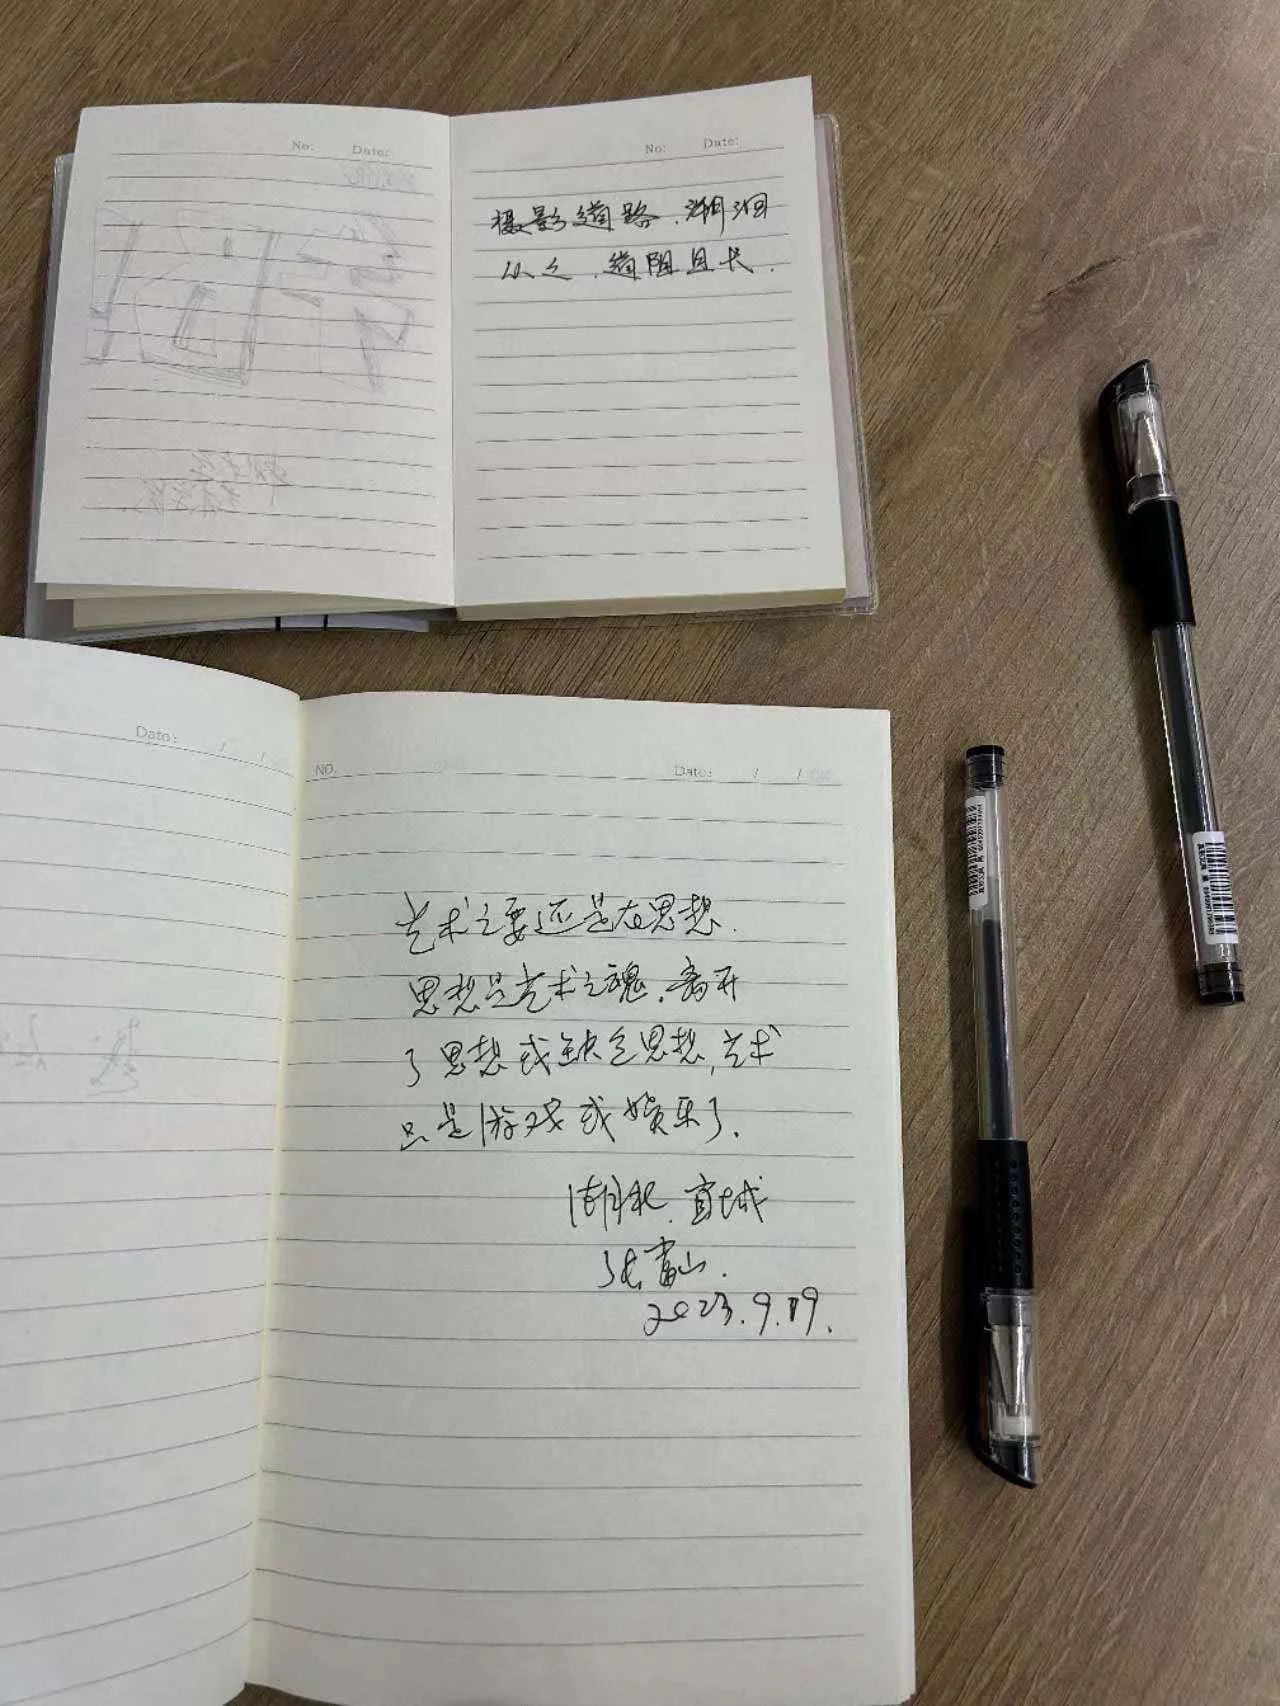 No: Date:
No: Date:
摄影道路，溯洄
从之，道阻且长．
Date: / /
NO.
Date: / /
艺术之要还是在思想．
思想是艺术之魂．离开
了思想或缺乏思想，艺术
只是游戏或娱乐了．
湖北．宜城
张富山．
2023.9.19.